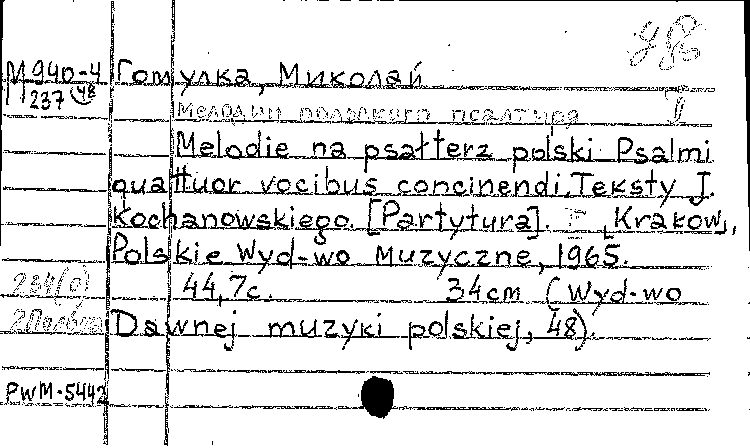 М940-4 Гомулка, Миколай
237 48
Мелодии польского псалтыря
Melodie na psałterz polski Psalmi
quattuor vocibus concinendi. Teksty J.
Kochanowskiego. [Partytura]. [Krakow],
Polskie Wyd-wo Muzyczne, 1965.
234(0) 44,7c. 34cm (Wyd-wo
2Польша Dawnej muzyki polskiej, 48).
PWM-5442